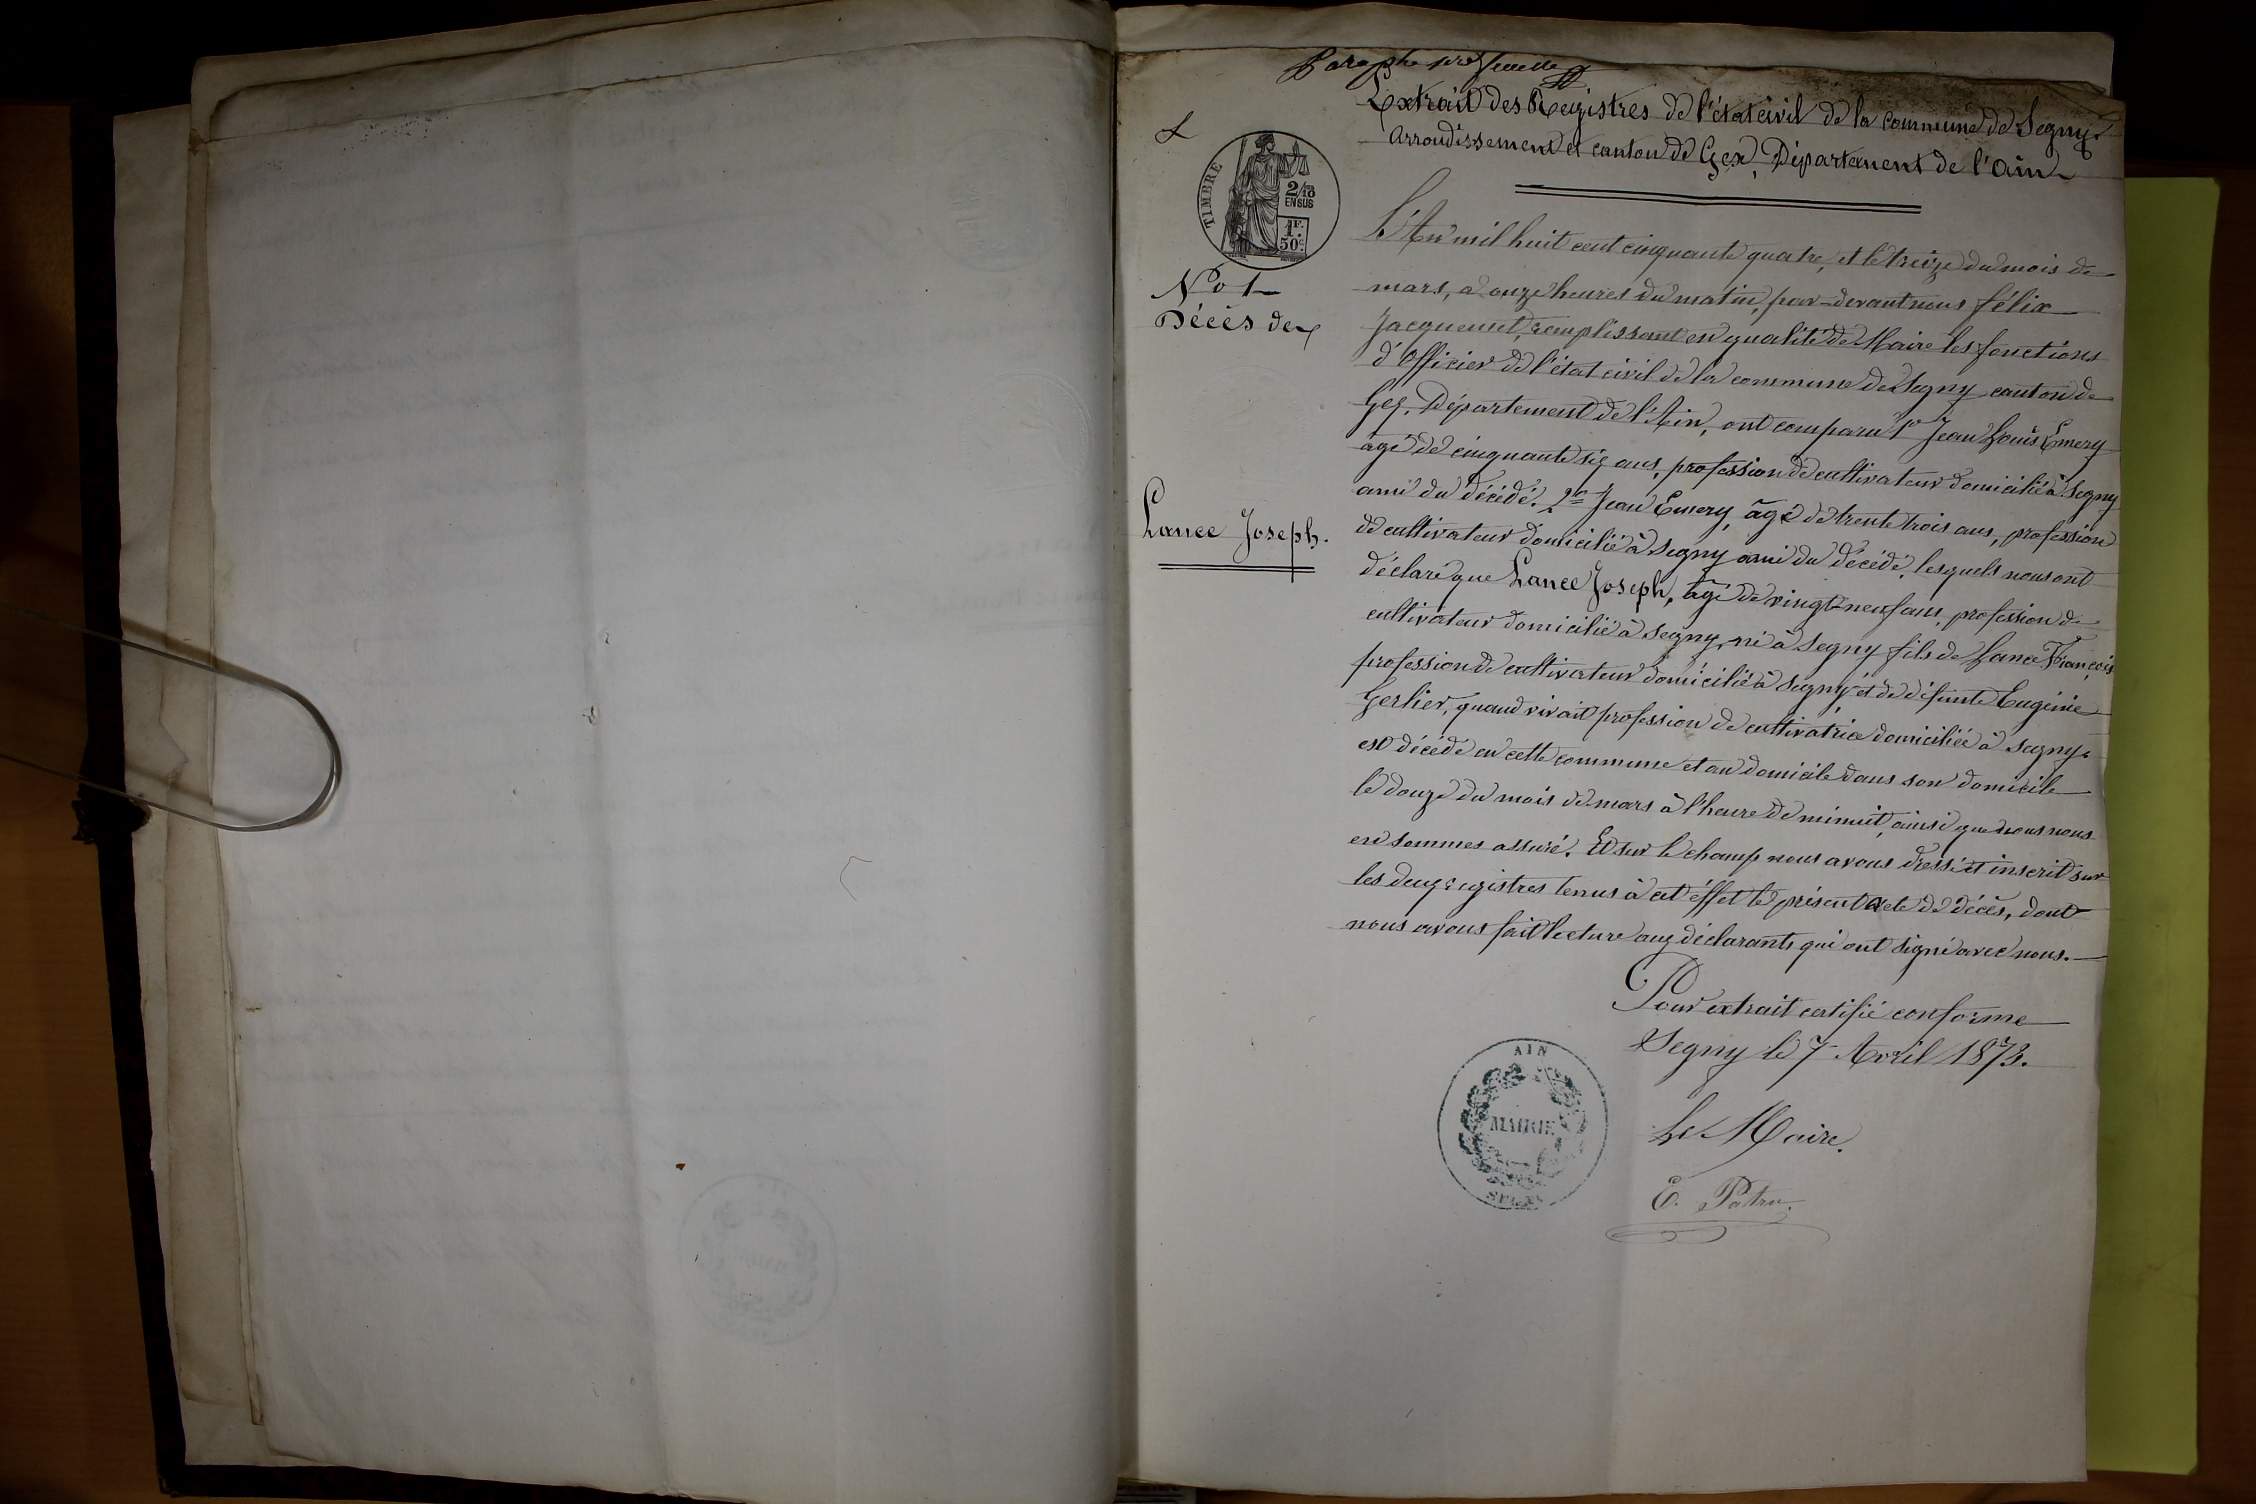 Extrait des Registres de l'état civil de la commune de Segny
arrondissement et canton de Gex, Département de l'Ain
TIMBRE
2/10
EN SUS
1F.
50c.
No 1
Décès de
Lance Joseph.
L'An mil huit cent cinquante quatre, et le treize du mois de
mars, à onze heures du matin, par-devant nous félix
Jacquemet, remplissant en qualité de Maire les fonctions
d'Officier de l'état civil de la commune de Segny canton de
Gex, Département de l'Ain, ont comparu 1° Jean Louis Emery
âgé de cinquante six ans, profession de cultivateur domicilié à Segny
ami du décédé. 2° Jean Emery, âgé de trente trois ans, profession
de cultivateur domicilié à Segny ami du décédé, lesquels nous ont
déclaré que Lance Joseph, âgé de vingt-neuf ans, profession de
cultivateur domicilié à Segny, né à Segny fils de Lance François
profession de cultivateur domicilié à Segny et de défunte Eugénie
Gerlier, quand vivait profession de cultivatrice domiciliée à Segny,
est décédé en cette commune et au domicile dans son domicile
le douze du mois de mars à l'heure de minuit, ainsi que nous nous
en sommes assuré. Et sur le champ nous avons dressé et inscrit sur
les deux registres tenus à cet éffet le présent acte de décès, dont
nous avons fait lecture aux déclarants qui ont signé avec nous.
Pour extrait certifié conforme
Segny le 7 Avril 1873.
Le Maire.
E. Patru.
AIN
MAIRIE
SEGNY